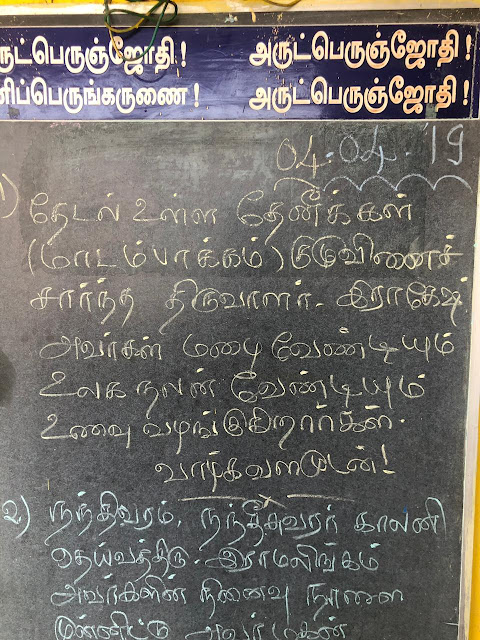 ருட்பெருஞ்ஜோதி! அருட்பெருஞ்ஜோதி!
னிப்பெருங்கருணை! அருட்பெருஞ்ஜோதி!
04.04.'19
1) தேடல் உள்ள தேனீக்கள்
(மாடம்பாக்கம்) குழுவினைச்
சார்ந்த திருவாளர். இராகேஷ்
அவர்கள் மழை வேண்டியும்
உலக நலன் வேண்டியும்
உணவு வழங்குகிறார்கள்.
வாழ்கவளமுடன்!
2) நந்திவரம், நந்தீசுவரர் காலனி
தெய்வத்திரு. இராமலிங்கம்
அவர்களின் நினைவு நாளை
முன்னிட்டு அவர் மகன்